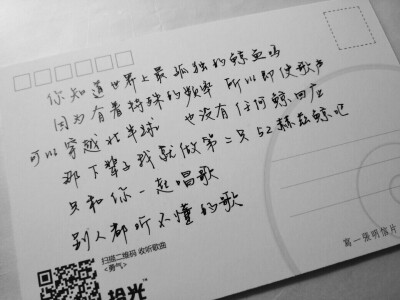 你知道世界上最孤独的鲸鱼吗
因为有着特殊的频率 所以即使歌声
可以穿越北半球 也没有任何鲸回应
那下辈子我就做第二只52赫兹鲸吧
只和你一起唱歌
别人都听不懂的歌
扫描二维码 收听歌曲
<勇气>
拾光™
寄一张明信片